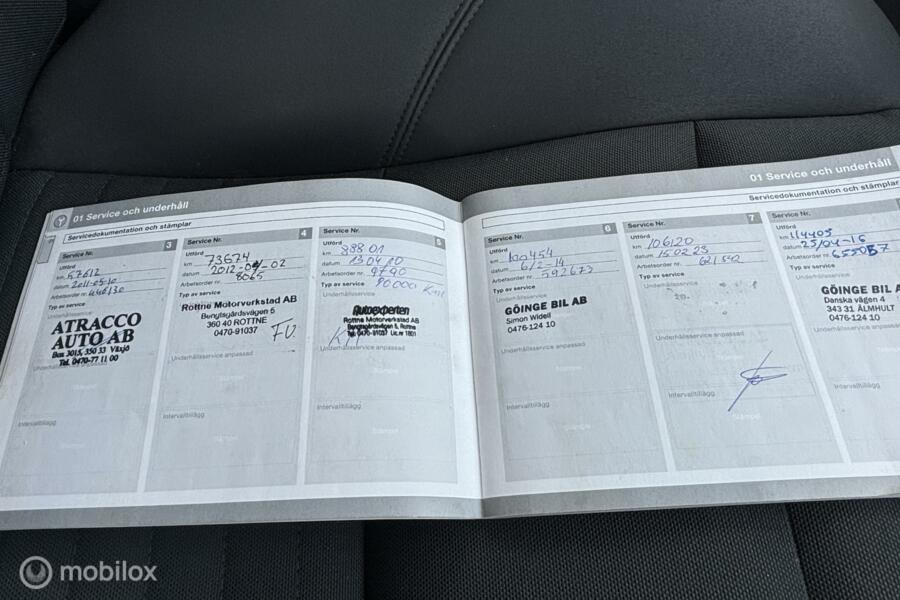 01 Service och underhåll
Servicedokumentation och stämplar
Service Nr. 3
Utförd
km 57612
datum 2011-05-10
Arbetsorder nr.
Typ av service
Underhållsservice
ATRACCO
AUTO AB
Box 3015, 350 33 Växjö
Tel. 0470-77 11 00
Underhållsservice anpassad
Intervalltillägg
Stämpel
Service Nr. 4
Utförd
km 73674
datum 2012-04-02
Arbetsorder nr. 8065
Typ av service
Rottne Motorverkstad AB
Bengtsgårdsvägen 5
360 40 ROTTNE
0470-91037
FU
Underhållsservice anpassad
Intervalltillägg
Stämpel
Service Nr. 5
Utförd
km 88801
datum 130410
Arbetsorder nr. 9790
Typ av service 90000 Km
Underhållsservice
Autoexperten
Rottne Motorverkstad AB
Bengtsgårdsvägen 5, Rottne
Tel. 0470-91037
Underhållsservice anpassad
Intervalltillägg
Stämpel
01 Service och underhåll
Servicedokumentation och stämplar
Service Nr. 6
Utförd
km 100454
datum 6/2-14
Arbetsorder nr. 592673
Typ av service
GÖINGE BIL AB
Simon Widell
0476-124 10
Underhållsservice anpassad
Intervalltillägg
Stämpel
Service Nr. 7
Utförd
km 106120
datum 15.02.23
Arbetsorder nr.
Typ av service
Underhållsservice
Underhållsservice anpassad
Intervalltillägg
Stämpel
Service Nr.
Utförd
km 114405
datum 25/04-16
Arbetsorder nr.
Typ av service
GÖINGE BIL A
Danska vägen 4
343 31 ÄLMHULT
0476-124 10
Underhållsservice anpassad
Intervalltillägg
Stämpel
mobilox